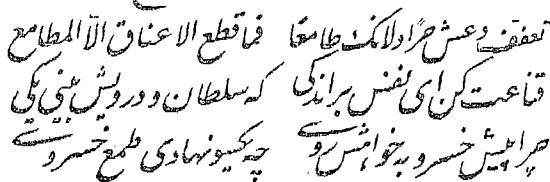 تعفف وعش حرا ولاتک طامعا فما قطع الاعناق الا المطامع
قناعت کن ای نفس براندکی که سلطان و درویش بینی یکی
چرا پیش خسرو به خواهش روی چه یکسو نهادی طمع خسروی